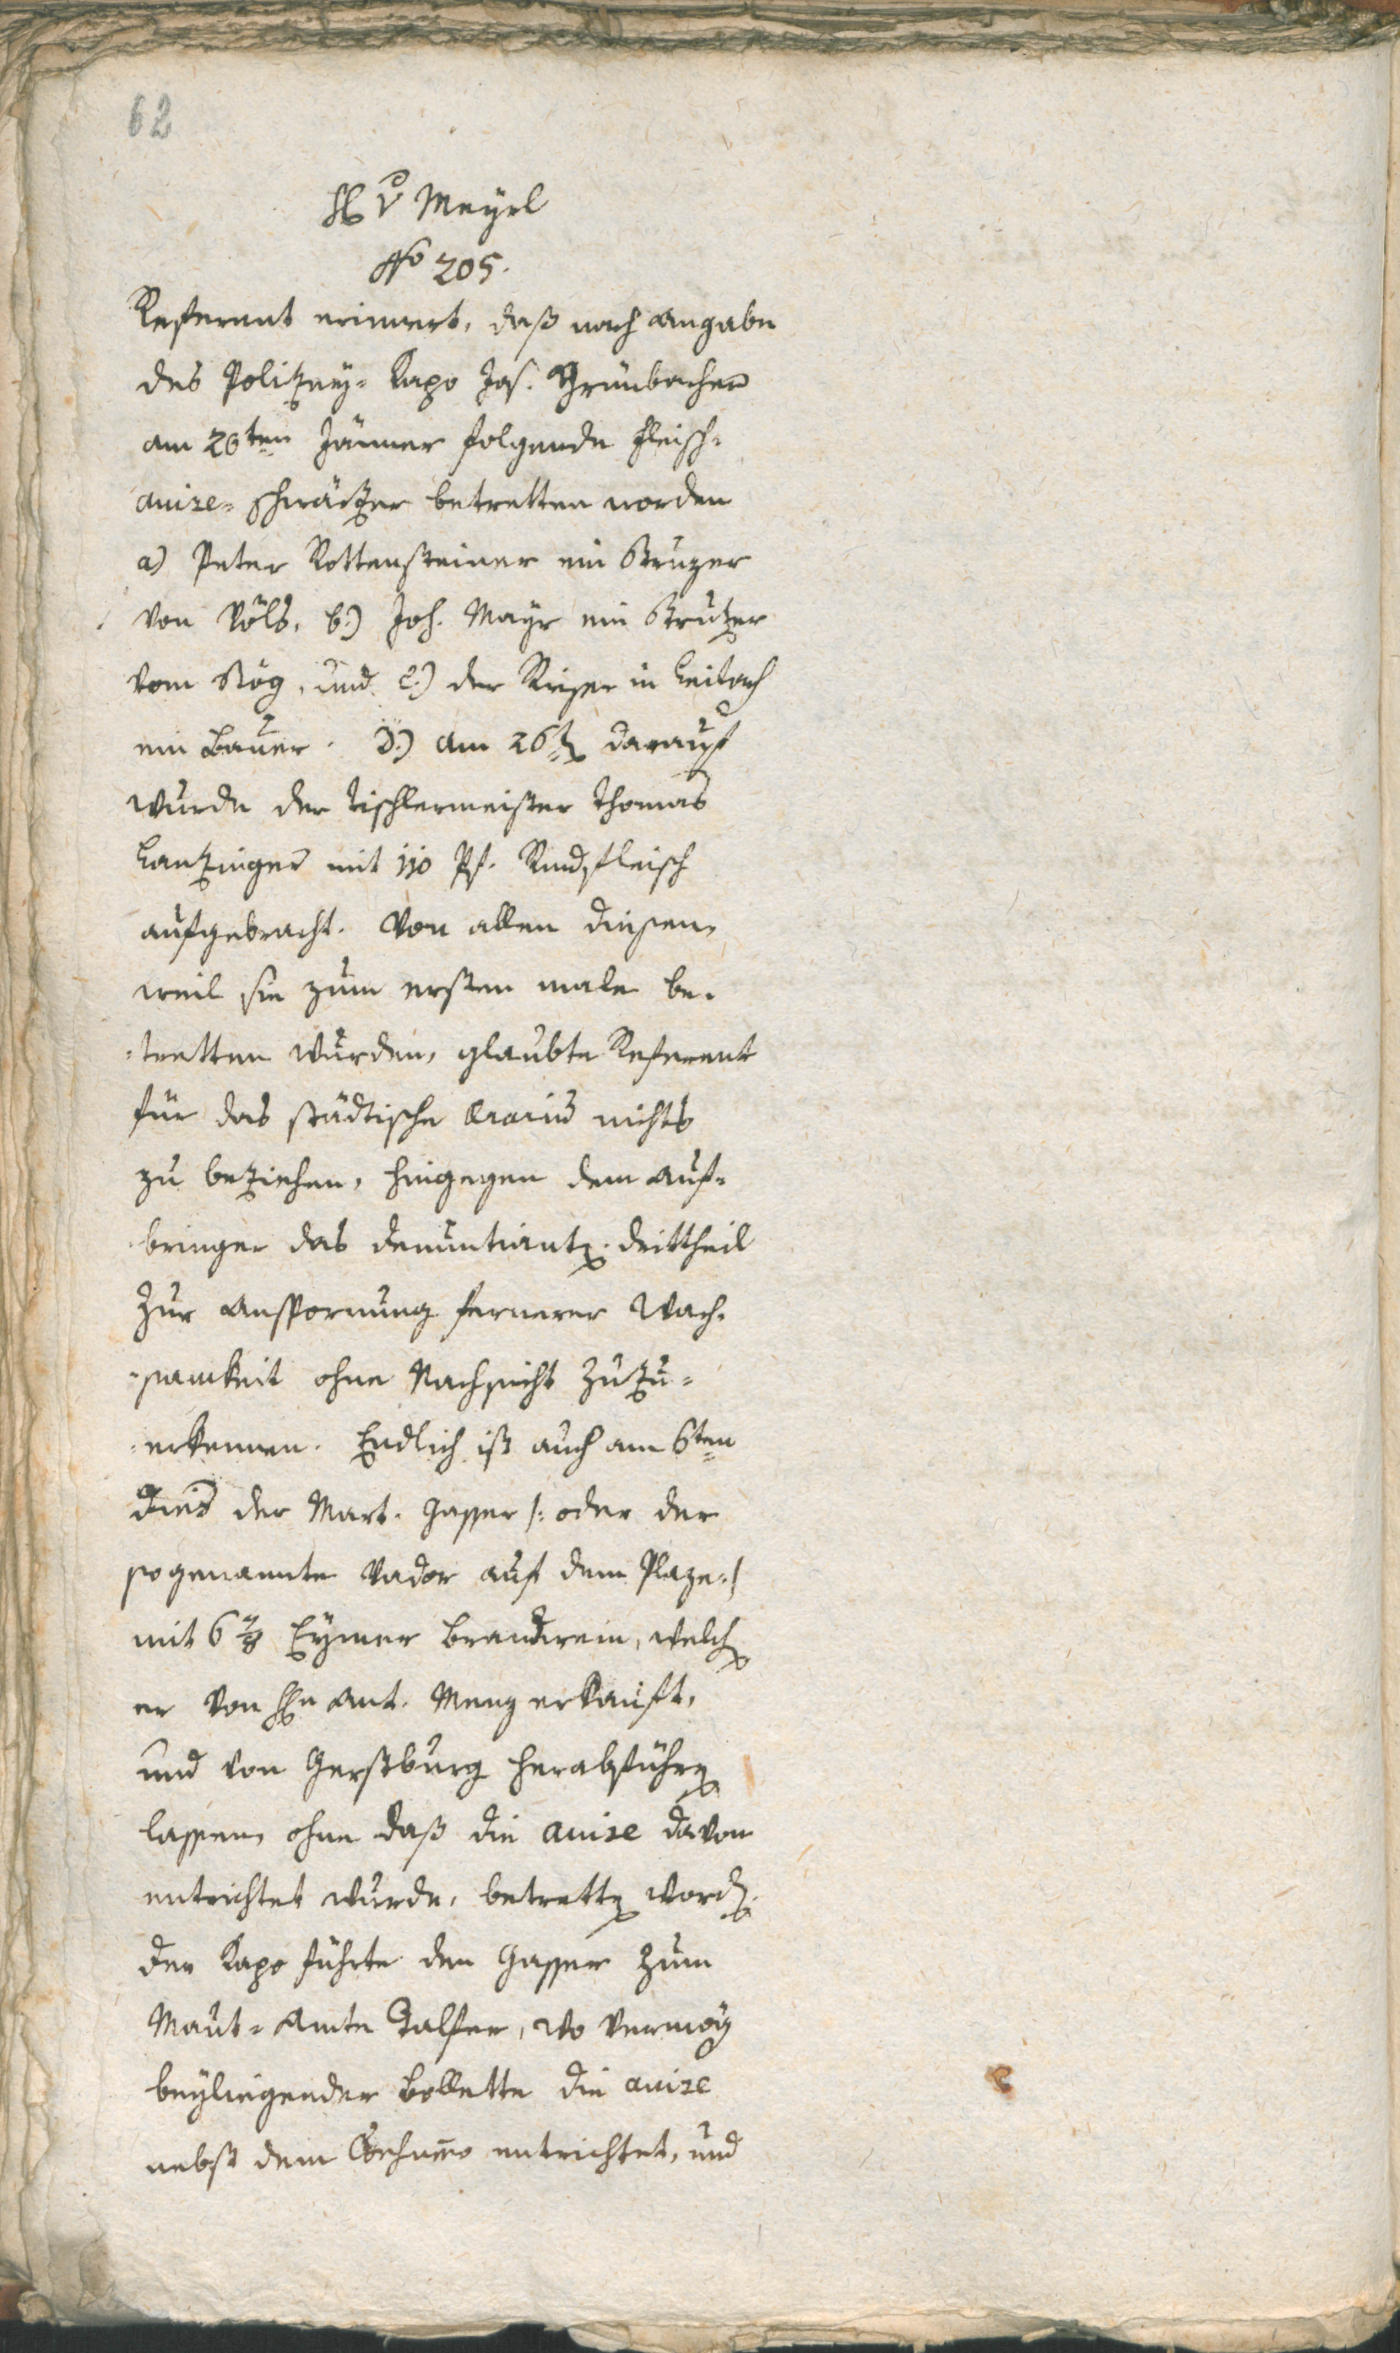 62
H v Meyrl
No 205.
Referent erinnert, daß nach Angabe
des Polizey= Kapo Jos. Grünbacher
am 20ten Jänner folgende Fleisch=
accise= Schwärzer betretten worden
a) Peter Rottensteiner ein Struzer
von Völs, b.) Joh. Mayr ein Strutzer
vom Stög, und c.) der Rieser in Leitach
ein Bauer. d.) am 26ten darauf
wurde der Tischlermeister Thomas
Lantzinger mit 110 Pf. Rindfleisch
aufgebracht. Von allen diesen,
weil sie zum ersten male be=
=tretten wurden, glaubte Referent
für das städtische Ærarium nichts
zu beziehen, hingegen dem Auf=
bringer das denuntianten drittheil
zur Anspornung fernerer Wach=
=samkeit ohne Nachsicht zuzu=
=erkennen. Endlich ist auch am 6ten
dies der Mart. Gasser /: oder der
sogenannte Vador auf dem Plaze :/
mit 6 7/8 Eymer Brandwein, welchen
er von Hn Ant. Menz erkauft,
und von Gerstburg herabführen
lassen, ohne daß die accise davon
entrichtet wurde, betretten worden.
Der Kapo führte den Gasser zum
Maut= Amte Talfer, wo vermög
beyliegender Bollette die accise
nebst dem entrichtet, und